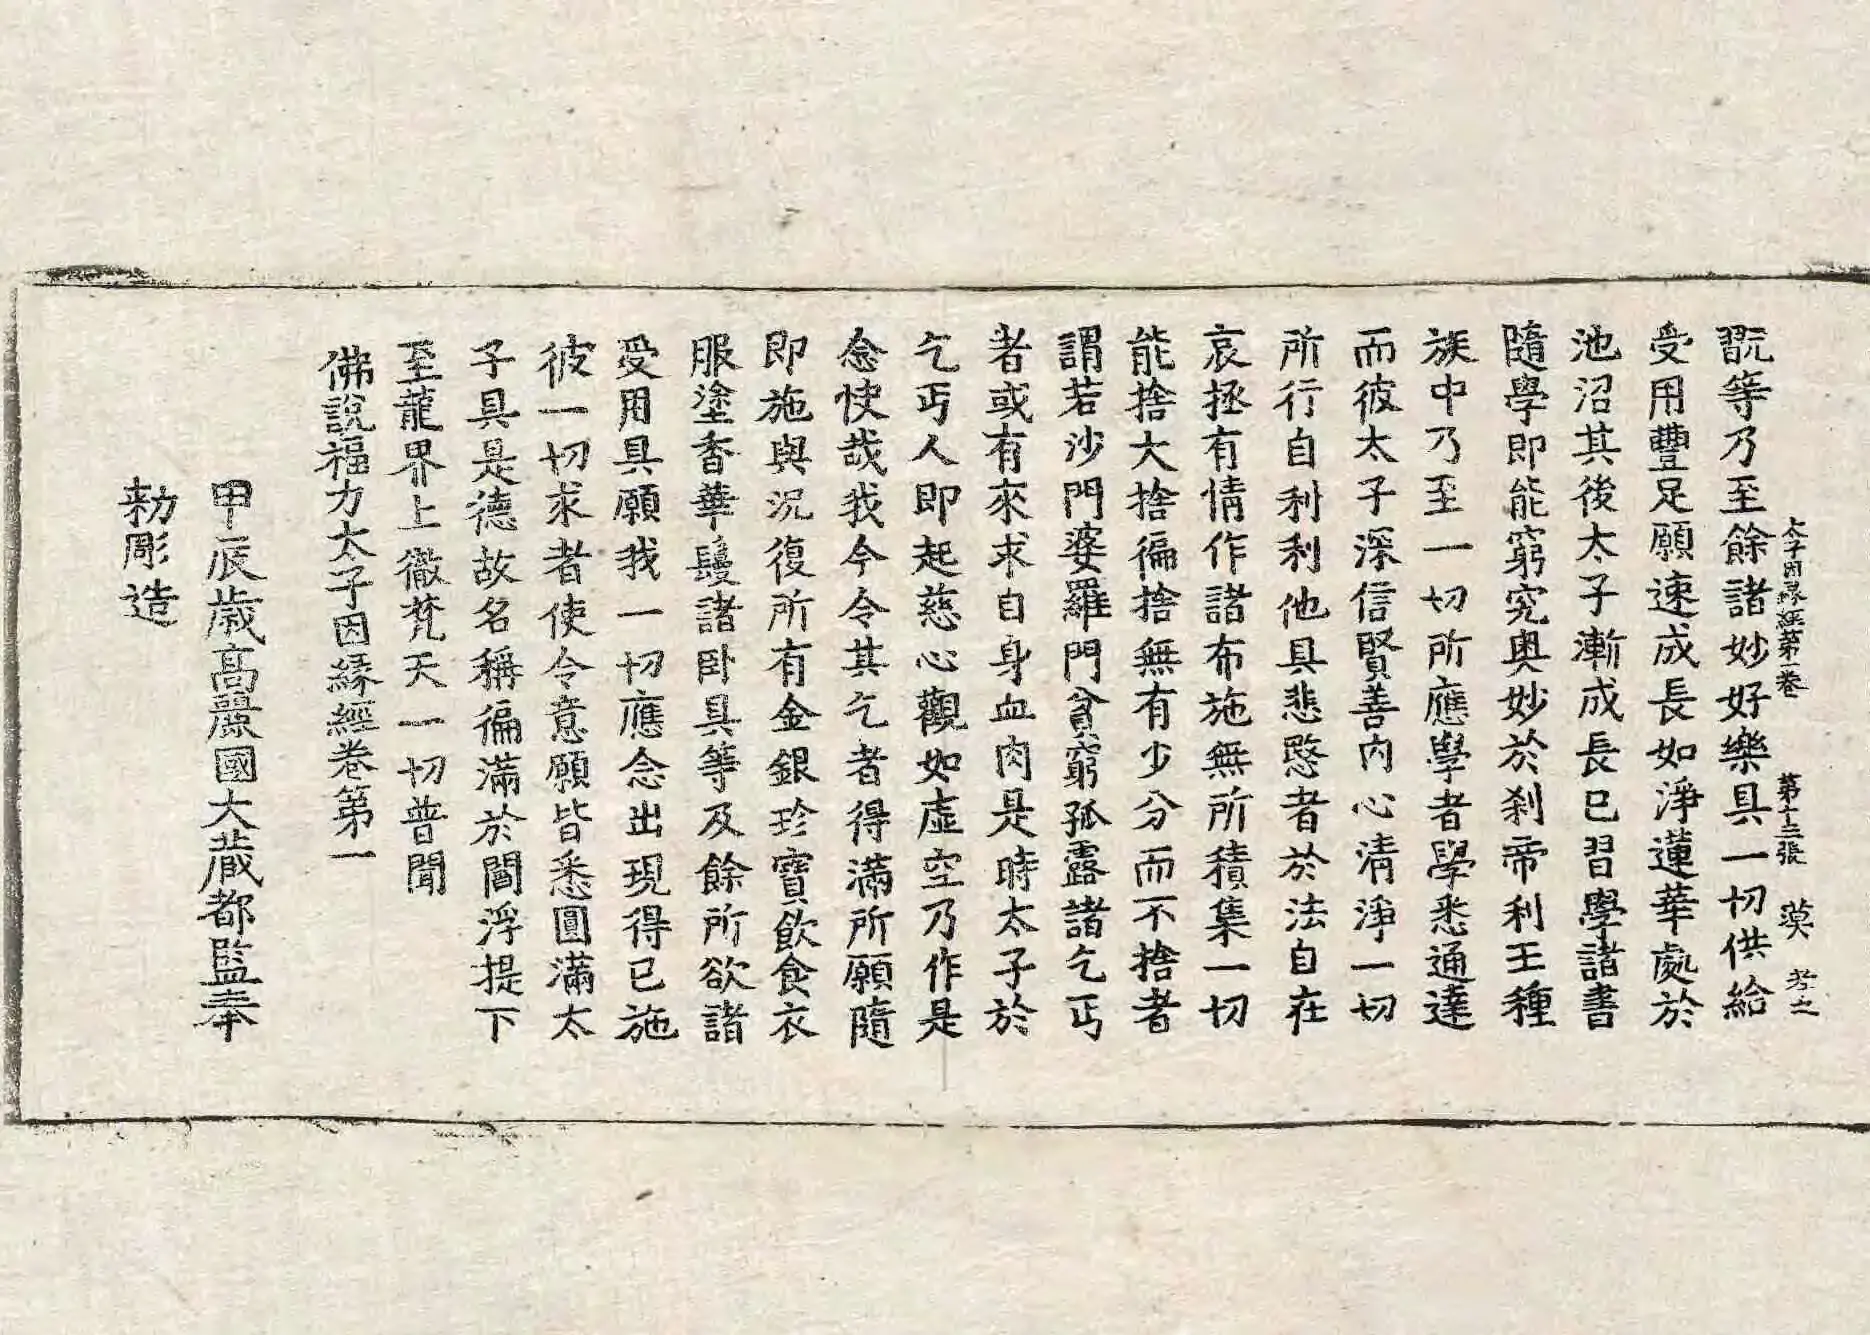 太子因緣經第一卷 第十三張 漠 孝之
翫等乃至餘諸妙好樂具一切供給
受用豐足願速成長如淨蓮華處於
池沼其後太子漸成長已習學諸書
隨學即能窮究奥妙於刹帝利王種
族中乃至一切所應學者學悉通達
而彼太子深信賢善内心清淨一切
所行自利利他具悲愍者於法自在
哀拯有情作諸布施無所積集一切
能捨大捨徧捨無有少分而不捨者
謂若沙門婆羅門貧窮孤露諸乞丐
者或有來求自身血肉是時太子於
乞丐人即起慈心觀如虛空乃作是
念快哉我今令其乞者得滿所願隨
即施與況復所有金銀珍寶飲食衣
服塗香華鬘諸卧具等及餘所欲諸
受用具願我一切應念出現得已施
彼一切求者使令意願皆悉圓滿太
子具是德故名稱徧滿於閻浮提下
至龍界上徹梵天一切普聞
佛說福力太子因緣經卷第一
甲辰歲高麗國大藏都監奉
勑彫造